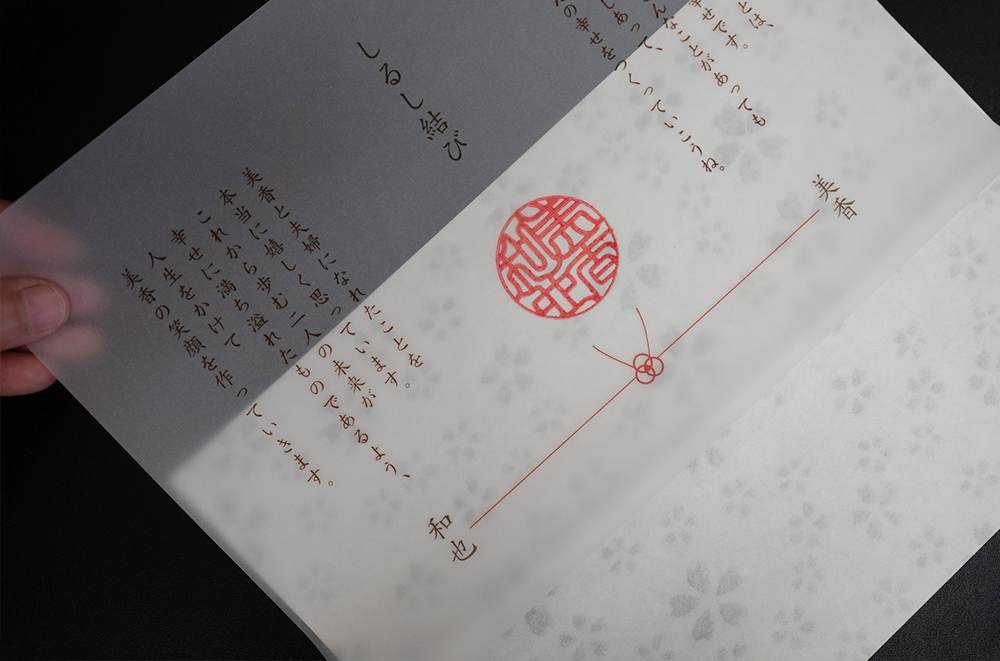 とは、
せです。
んなことがあっても
しあって、
の幸せをつくっていこうね。
しるし結び
美香と夫婦になれたことを
本当に嬉しく思っています。
これから歩む二人の未来が
幸せに満ち溢れたものであるよう、
人生をかけて
美香の笑顔を作っていきます。
美香
和也